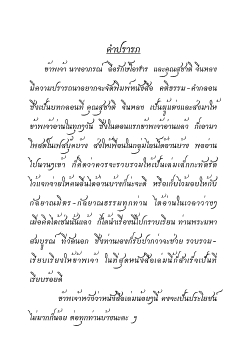 คำปรารภ
ข้าพเจ้า นางอาภรณ์ อือรักษ์โอฬาร และคุณสุชาติ จินทอง
มีความปรารถนาอยากจะจัดพิมพ์หนังสือ คติธรรม-คำกลอน
ซึ่งเป็นบทกลอนที่ คุณสุชาติ จินทอง เป็นผู้แต่งและส่งมาให้
ข้าพเจ้าอ่านในทุกๆวัน ซึ่งในตอนแรกข้าพเจ้าอ่านแล้ว ก็เอามา
โพสต์ในเฟสบุ๊คบ้าง ส่งให้เพื่อนในกลุ่มไลน์ได้อ่านบ้าง พออ่าน
ไปนานๆเข้า ก็คิดว่าควรจะรวบรวมให้เป็นเล่มเล็กๆดีหรือ
ไว้แจกจ่ายให้คนอื่นได้อ่านบ้างก็น่าจะดี หรือเก็บไว้มอบให้กับ
กัลยาณมิตร-กัลยาณธรรมทุกท่าน ได้อ่านในเวลาว่างๆ
เมื่อคิดได้เช่นนั้นแล้ว ก็ได้นำเรื่องนี้ไปกราบเรียน ท่านพระมหา
สมบูรณ์ ซึ่งท่านเองก็รับปากว่าจะช่วย รวบรวม-
เรียบเรียงให้ข้าพเจ้า ในที่สุดหนังสือเล่มนี้ก็สำเร็จเป็นที่
เรียบร้อยดี
ข้าพเจ้าหวังว่าหนังสือเล่มน้อยๆนี้ คงจะเป็นประโยชน์
ไม่มากก็น้อย ต่อทุกท่านบ้างนะคะ ๆ